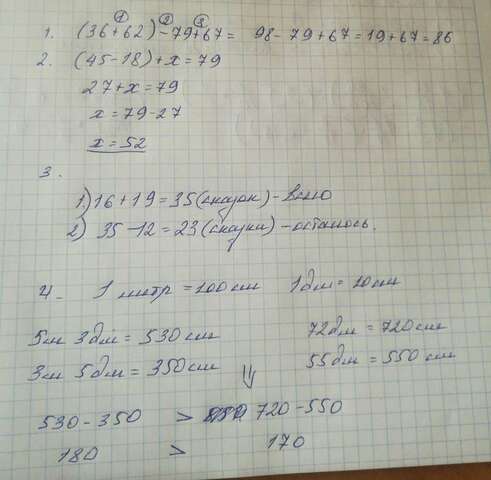 ① ② ③
1. (36+62)-79+67= 98-79+67=19+67=86
2. (45-18)+x=79
27+x=79
x=79-27
x=52
3.
1) 16+19=35(сказок)-всего
2) 35-12=23(сказки)-осталось.
4. 1 метр=100см 1дм=10см
5м 3дм=530см 72дм=720см
3м 5дм=350см 55дм=550см
⇓
530-350 > 720-550
180 > 170